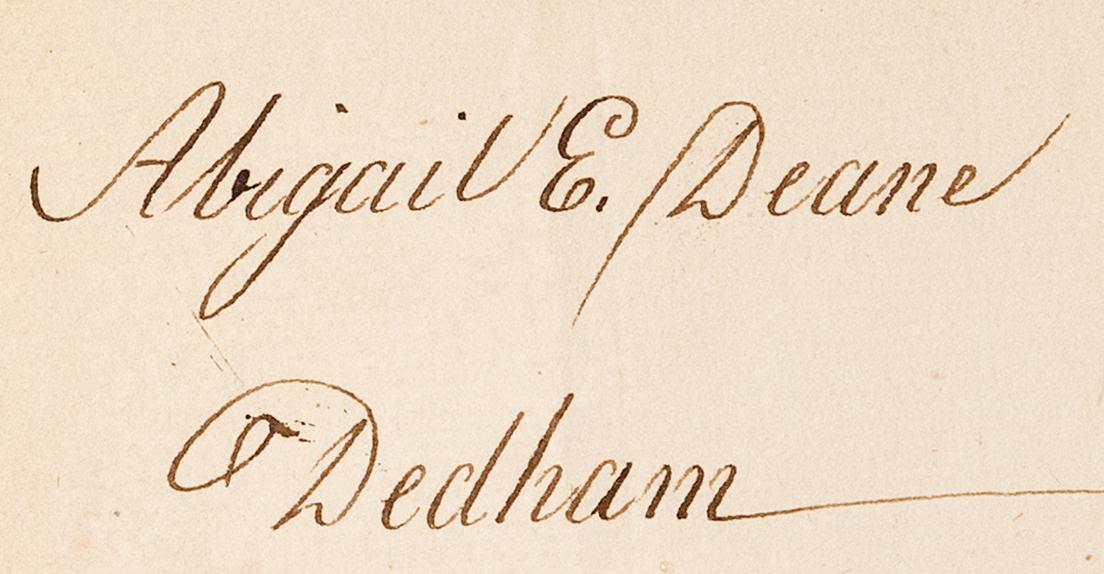 Abigail E. Deane
Dedham